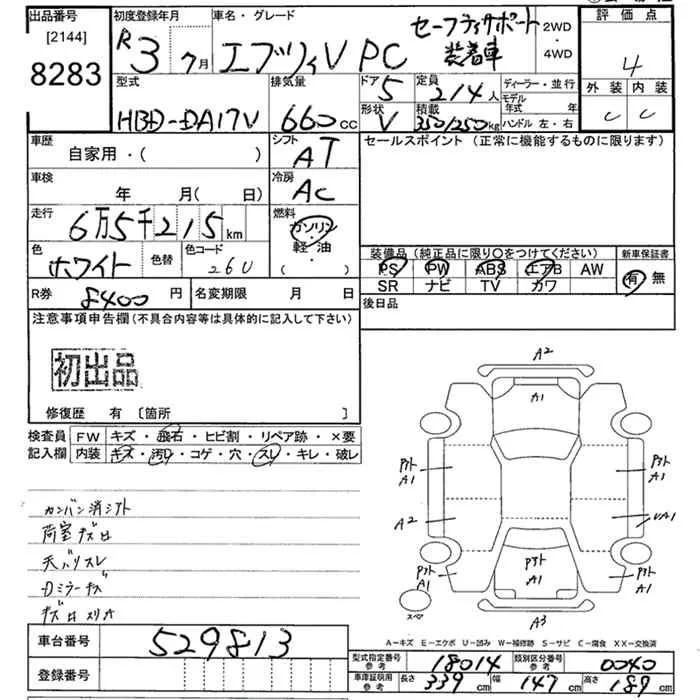 出品番号 初度登録年月 車名・グレード 評価点
[2144] R3 7月 エブリィV PC セーフティサポート装着車 2WD・4WD 4
8283
型式 排気量 ドア 5 定員 2/4人 ディーラー・並行 外装 内装
HBD-DA17V 660cc 形状 V 積載 350/250kg モデル年式 年 C C
ハンドル 左・右
車歴 シフト セールスポイント (正常に機能するものに限ります)
自家用・( ) AT
車検 冷房
年 月(日) AC
走行 燃料
6万5千215km ガソリン・軽油・( )
色 色替 色コード 装備品 (純正品に限り○をつけてください) 新車保証書
ホワイト 26U PS PW ABS エアB AW 有 無
SR ナビ TV カワ
R券 8400円 名変期限 月 日 後日品
注意事項申告欄 (不具合内容等は具体的に記入して下さい)
初出品
修復歴 有 [箇所 ]
検査員 FW キズ・飛石・ヒビ割・リペア跡・×要
記入欄 内装 キズ・汚れ・コゲ・穴・スレ・キレ・破レ
A2
A1
A1 A1
A2 UA1
A1 A1 A1
スペア A3
荷室キズ
天バリスレ
Dミラーキズ
A-キズ E-エクボ U-凹み W-補修跡 S-サビ C-腐食 XX-交換済
車台番号 529813
登録番号
型式指定番号 参考 18014 類別区分番号 参考 0040
車庫証明用 参考 長さ 339cm 幅 147cm 高さ 189cm